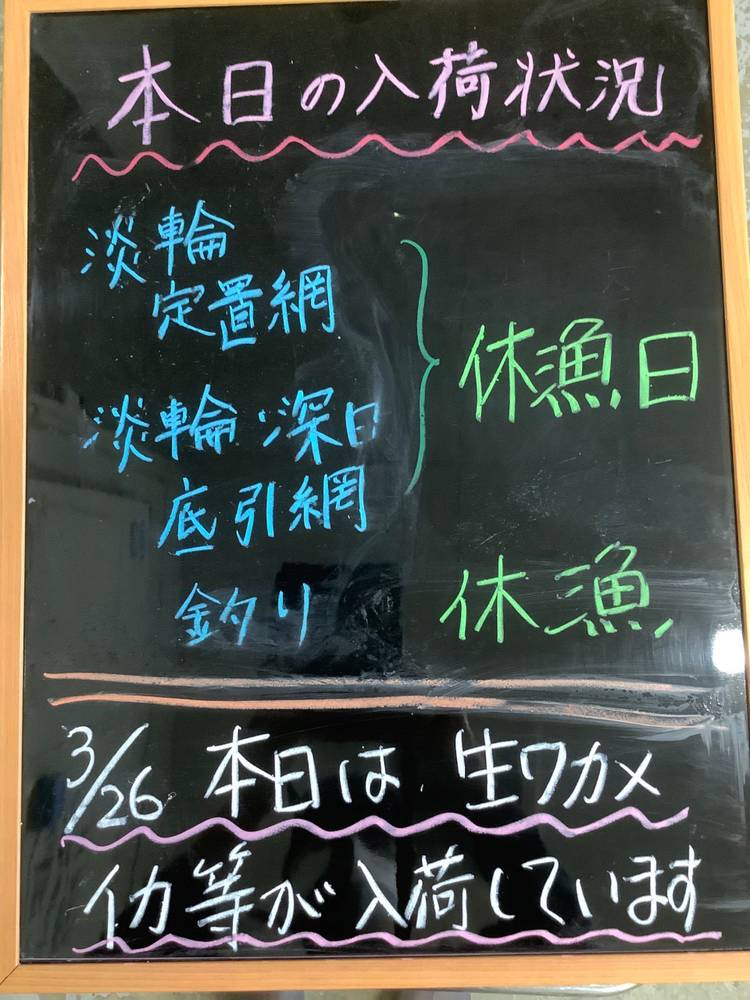 本日の入荷状況
淡輪
定置網
休漁日
淡輪・深日
底引網
釣り
休漁
3/26 本日は、生ワカメ
イカ等が入荷しています